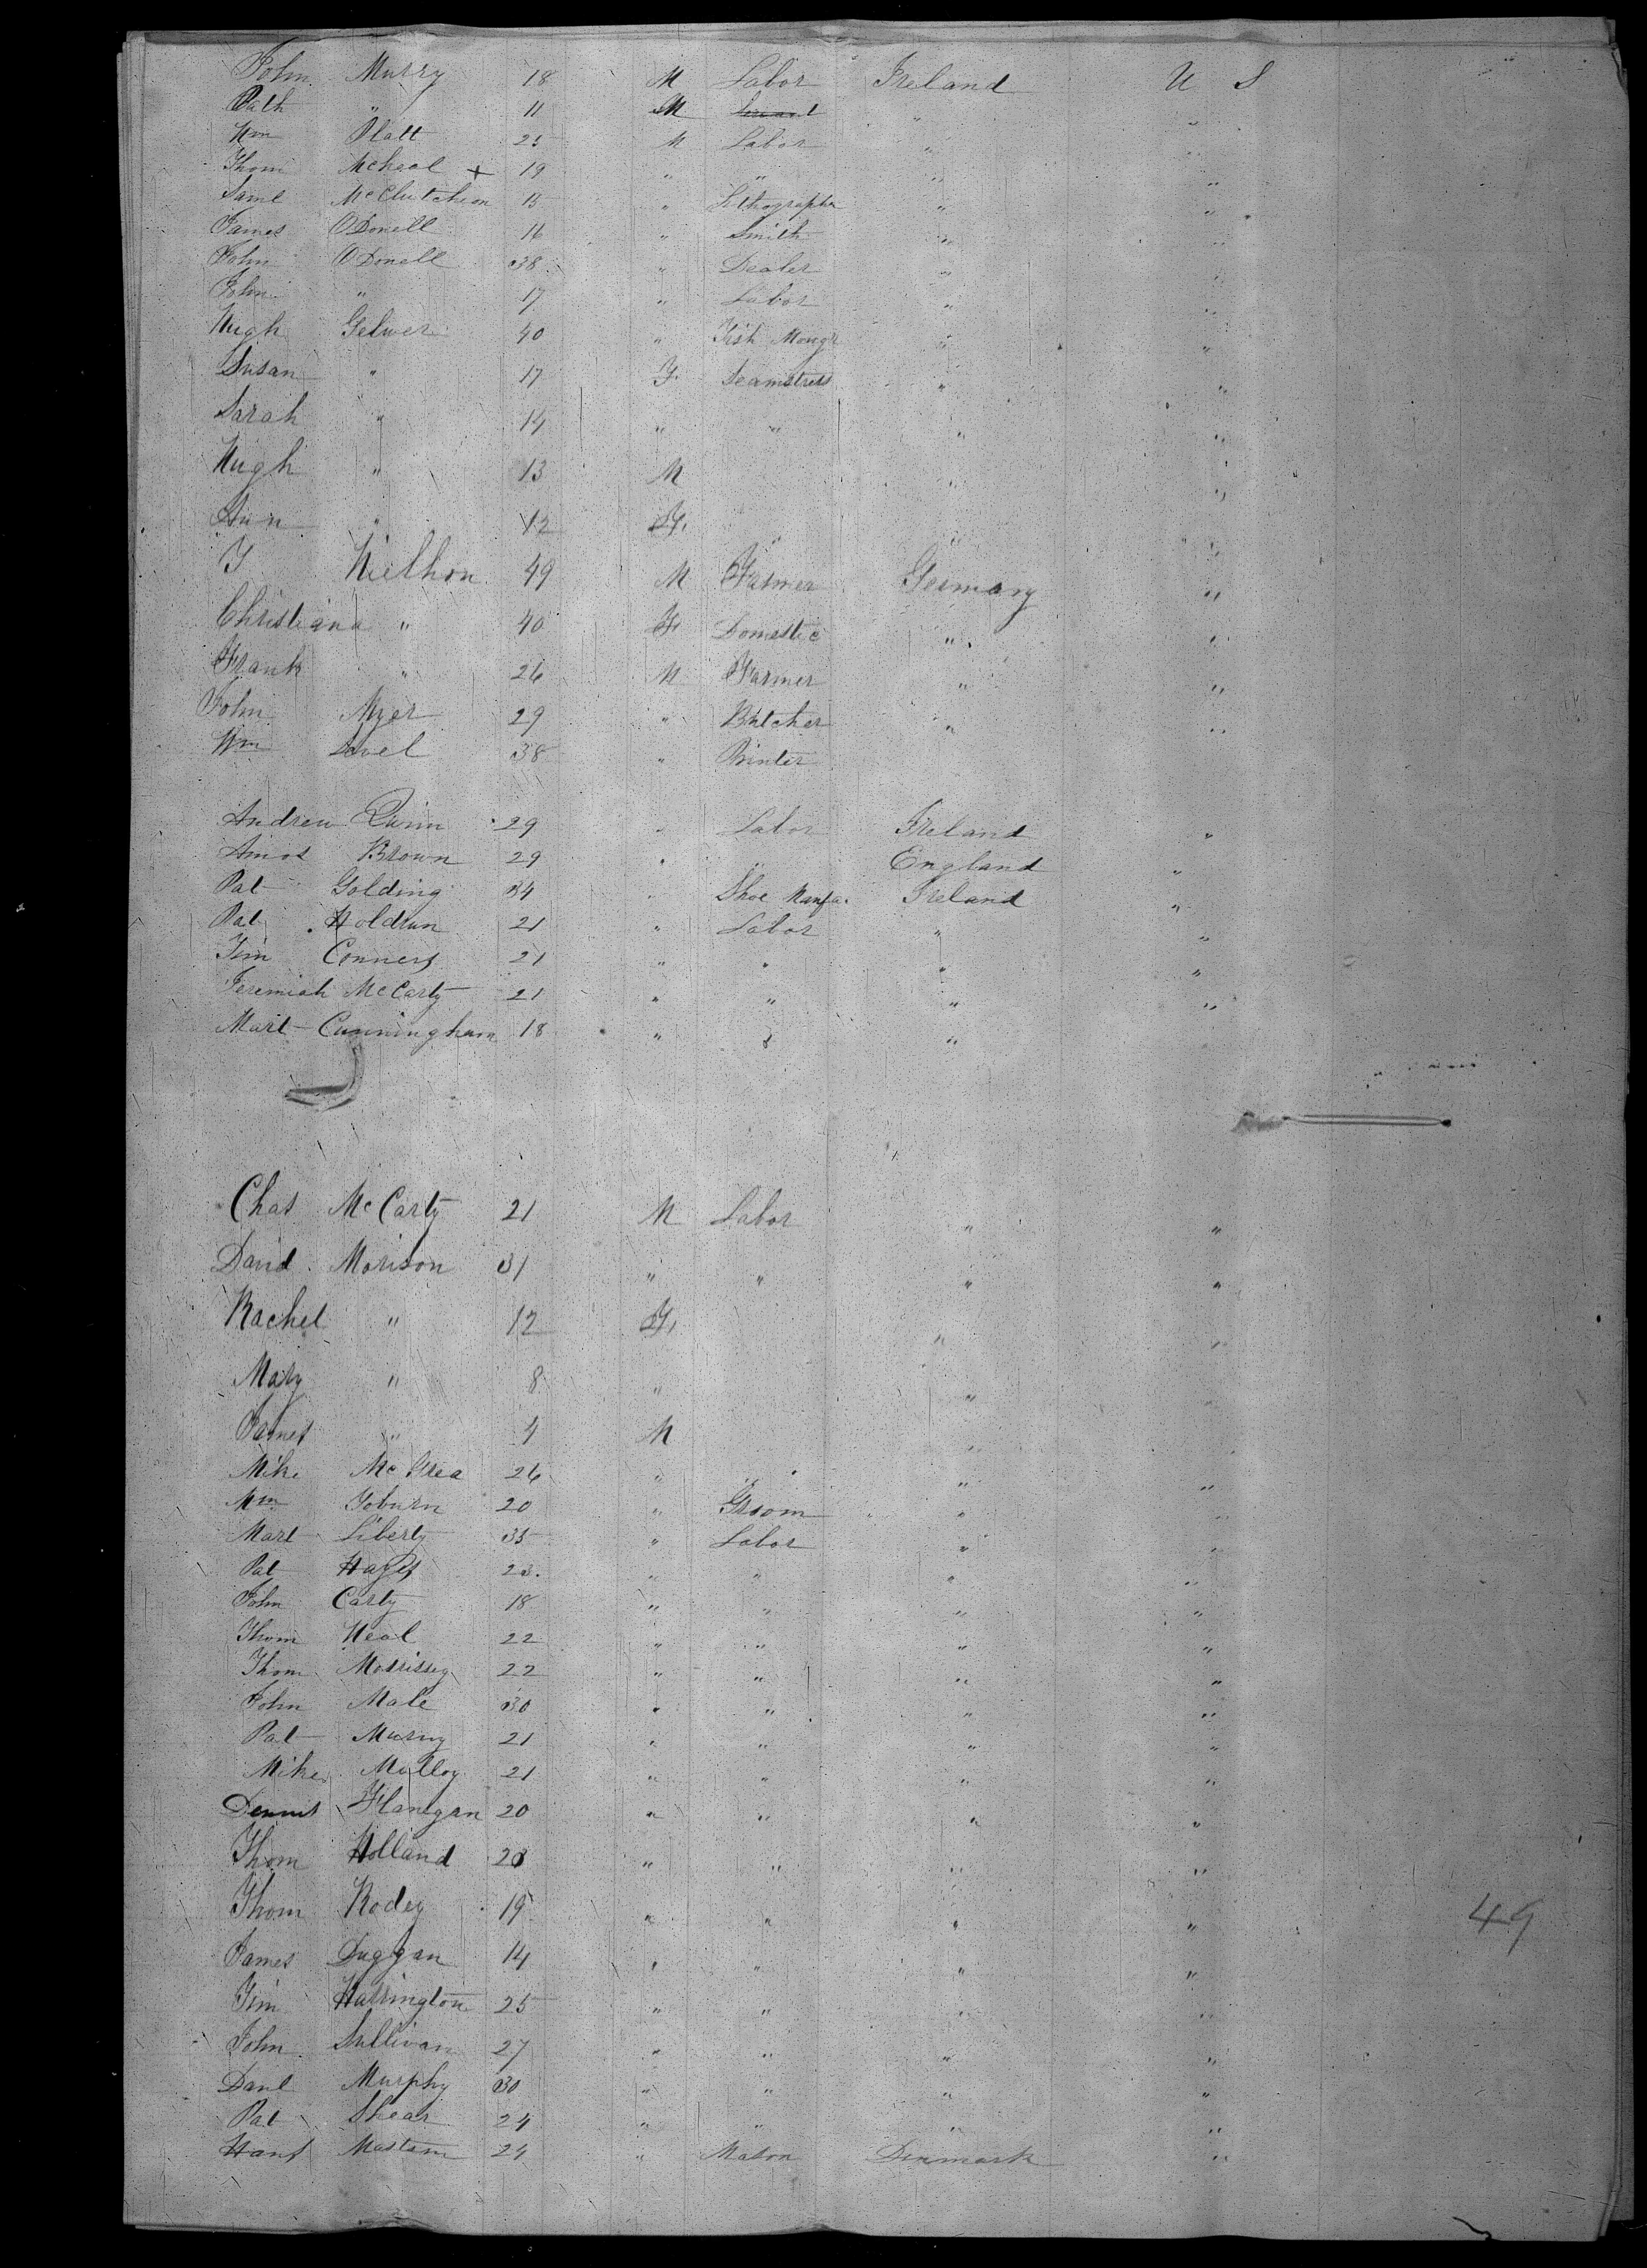 John Murry 18 M Labor Ireland U S
Path " 11 M "
Wm Platt 25 M Labor " "
Thom McHeal + 19 " " " "
Saml McClutcheon 15 " Lithographer " "
James ODonell 16 " Smith " "
John ODonell 38 " Dealer " "
John " 17 " Labor " "
Hugh Gelwer 40 " Fish Mongr " "
Susan " 17 F. Seamstress " "
Sarah " 14 " " " "
Hugh " 13 M " "
Ann " 12 F. " " "
J Niethon 49 M Farmer Germany "
Christiana " 40 F Domestic " "
Frank " 26 M Farmer " "
John Myer 29 " Butcher " "
Wm Lovel 38 " Printer
Andrew Quinn 29 " Labor Ireland "
Amos Brown 29 " " England "
Pat Golding 34 " Shoe Manfa. Ireland "
Pat Holdrun 21 " Labor " "
Jim Conners 21 " " " "
Jeremiah McCarty 21 " " " "
Mart Cunningham 18 " " "
Chas McCarty 21 M Labor " "
David Morison 31 " " " "
Rachel " 12 F, " "
Mary " 8 " " "
James " 4 M " "
Mike McGrea 26 " " " "
Wm Goburn 20 " Groom " "
Mart Liberty 35 " Labor " "
Pat Hayes 23. " " " "
John Carty 18 " " " "
Thom Neal 22 " " " "
Thom Morrissey 22 " " " "
John Male 30 " " " "
Pat Murry 21 " " " "
Mike Malloy 21 " " " "
Dennis Flanigan 20 " " " "
Thom Holland 23 " " " "
Thom Rodey 19 " " " "
James Duggan 14 " " " "
Jim Harrington 25 " " " "
John Sullivan 27 " " " "
Danl Murphy 30 " " " "
Pat Shear 24 " " " "
Hans Mastam 24 " Mason Denmark "
49